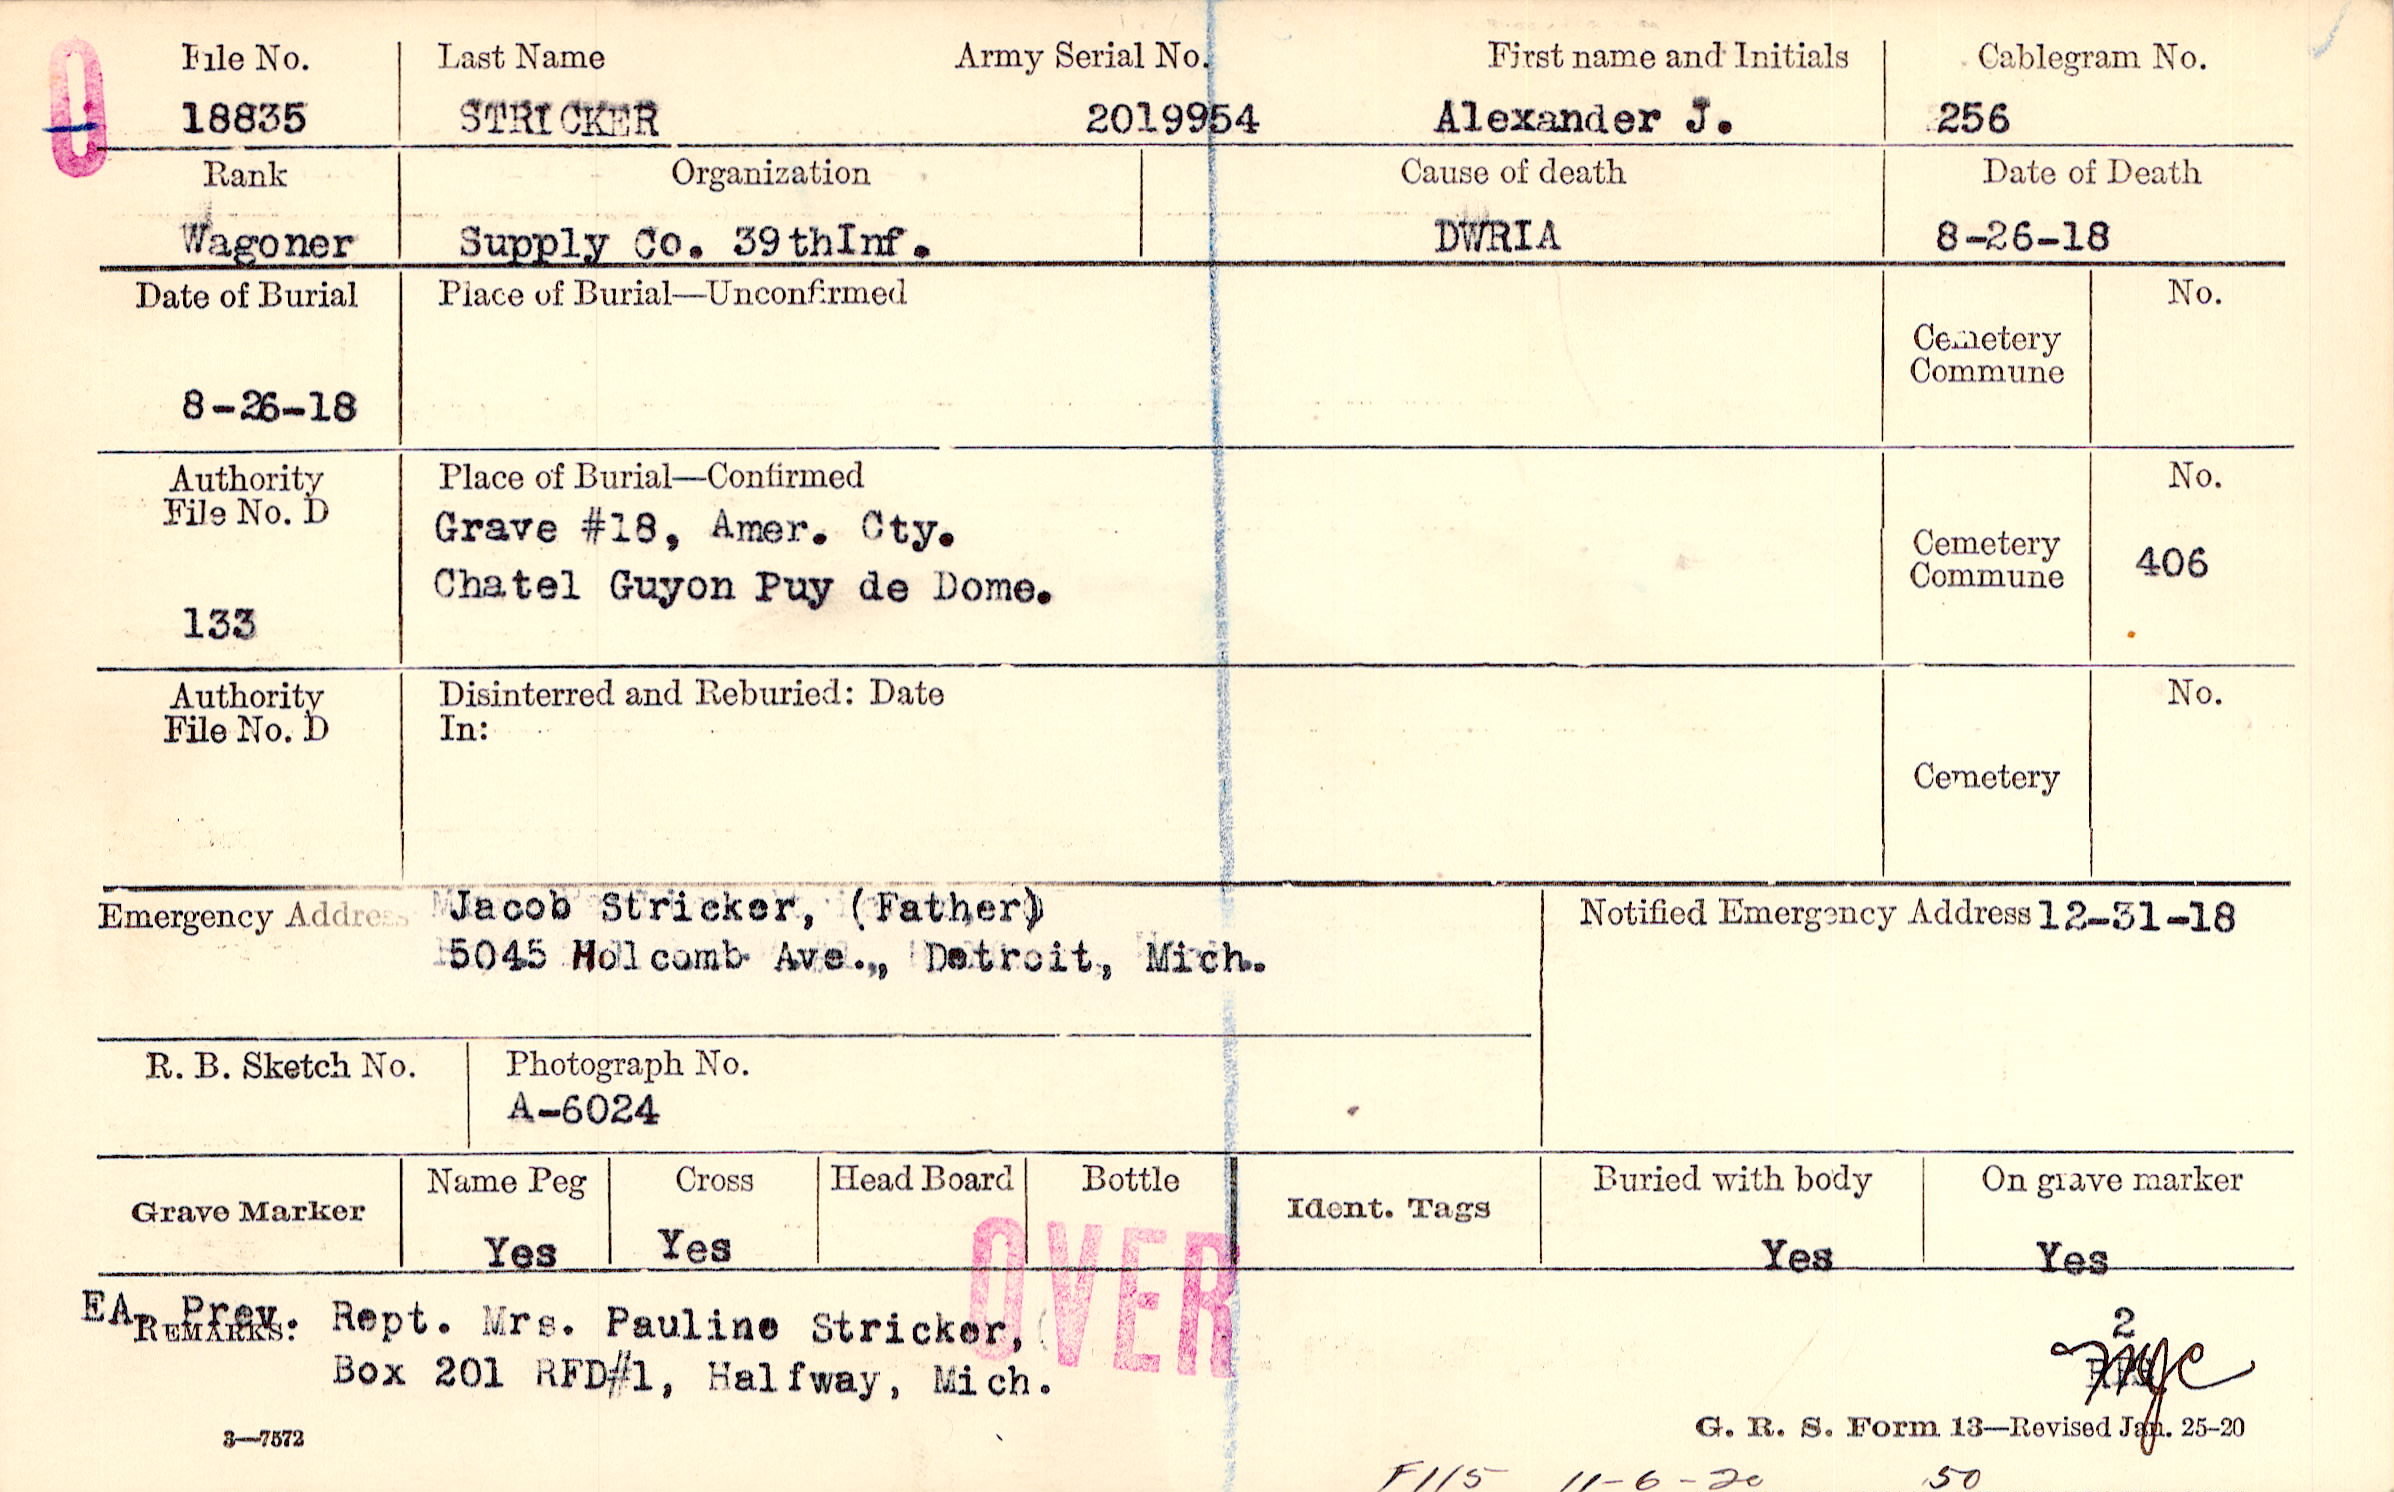 0
File No. Last Name Army Serial No. First name and Initials Cablegram No.
18835 STRICKER 2019954 Alexander J. 256
Rank Organization Cause of death Date of Death
Wagoner Supply Co. 39thInf. DWRIA 8-26-18
Date of Burial Place of Burial—Unconfirmed No.
Cemetery
Commune
8-26-18
Authority Place of Burial—Confirmed No.
File No. D
Grave #18, Amer. Cty.
Cemetery
Commune 406
Chatel Guyon Puy de Dome.
133
Authority Disinterred and Reburied: Date No.
File No. D In:
Cemetery
Emergency Address Jacob Stricker, (Father) Notified Emergency Address 12-31-18
5045 Holcomb Ave., Detroit, Mich.
R. B. Sketch No. Photograph No.
A-6024
Grave Marker Name Peg Cross Head Board Bottle Ident. Tags Buried with body On grave marker
Yes Yes Yes Yes
OVER
EA. Prev. Rept. Mrs. Pauline Stricker,
REMARKS:
Box 201 RFD#1, Halfway, Mich.
2
3—7572
G. R. S. Form 13—Revised Jan. 25-20
F115 11-6-20 50